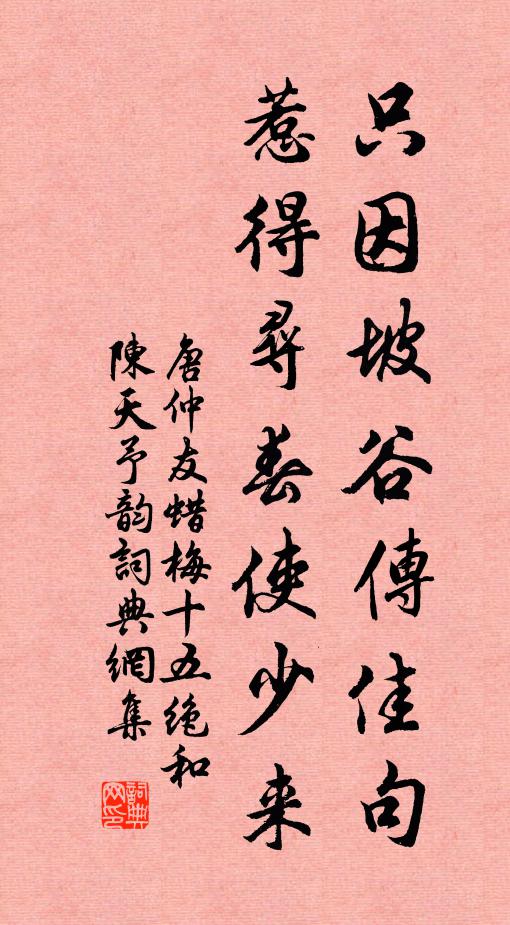 只因坡谷傳佳句
惹得尋春使少来
唐仲友蜡梅十五絶和
陳天予韵詞典網集
詞典网印